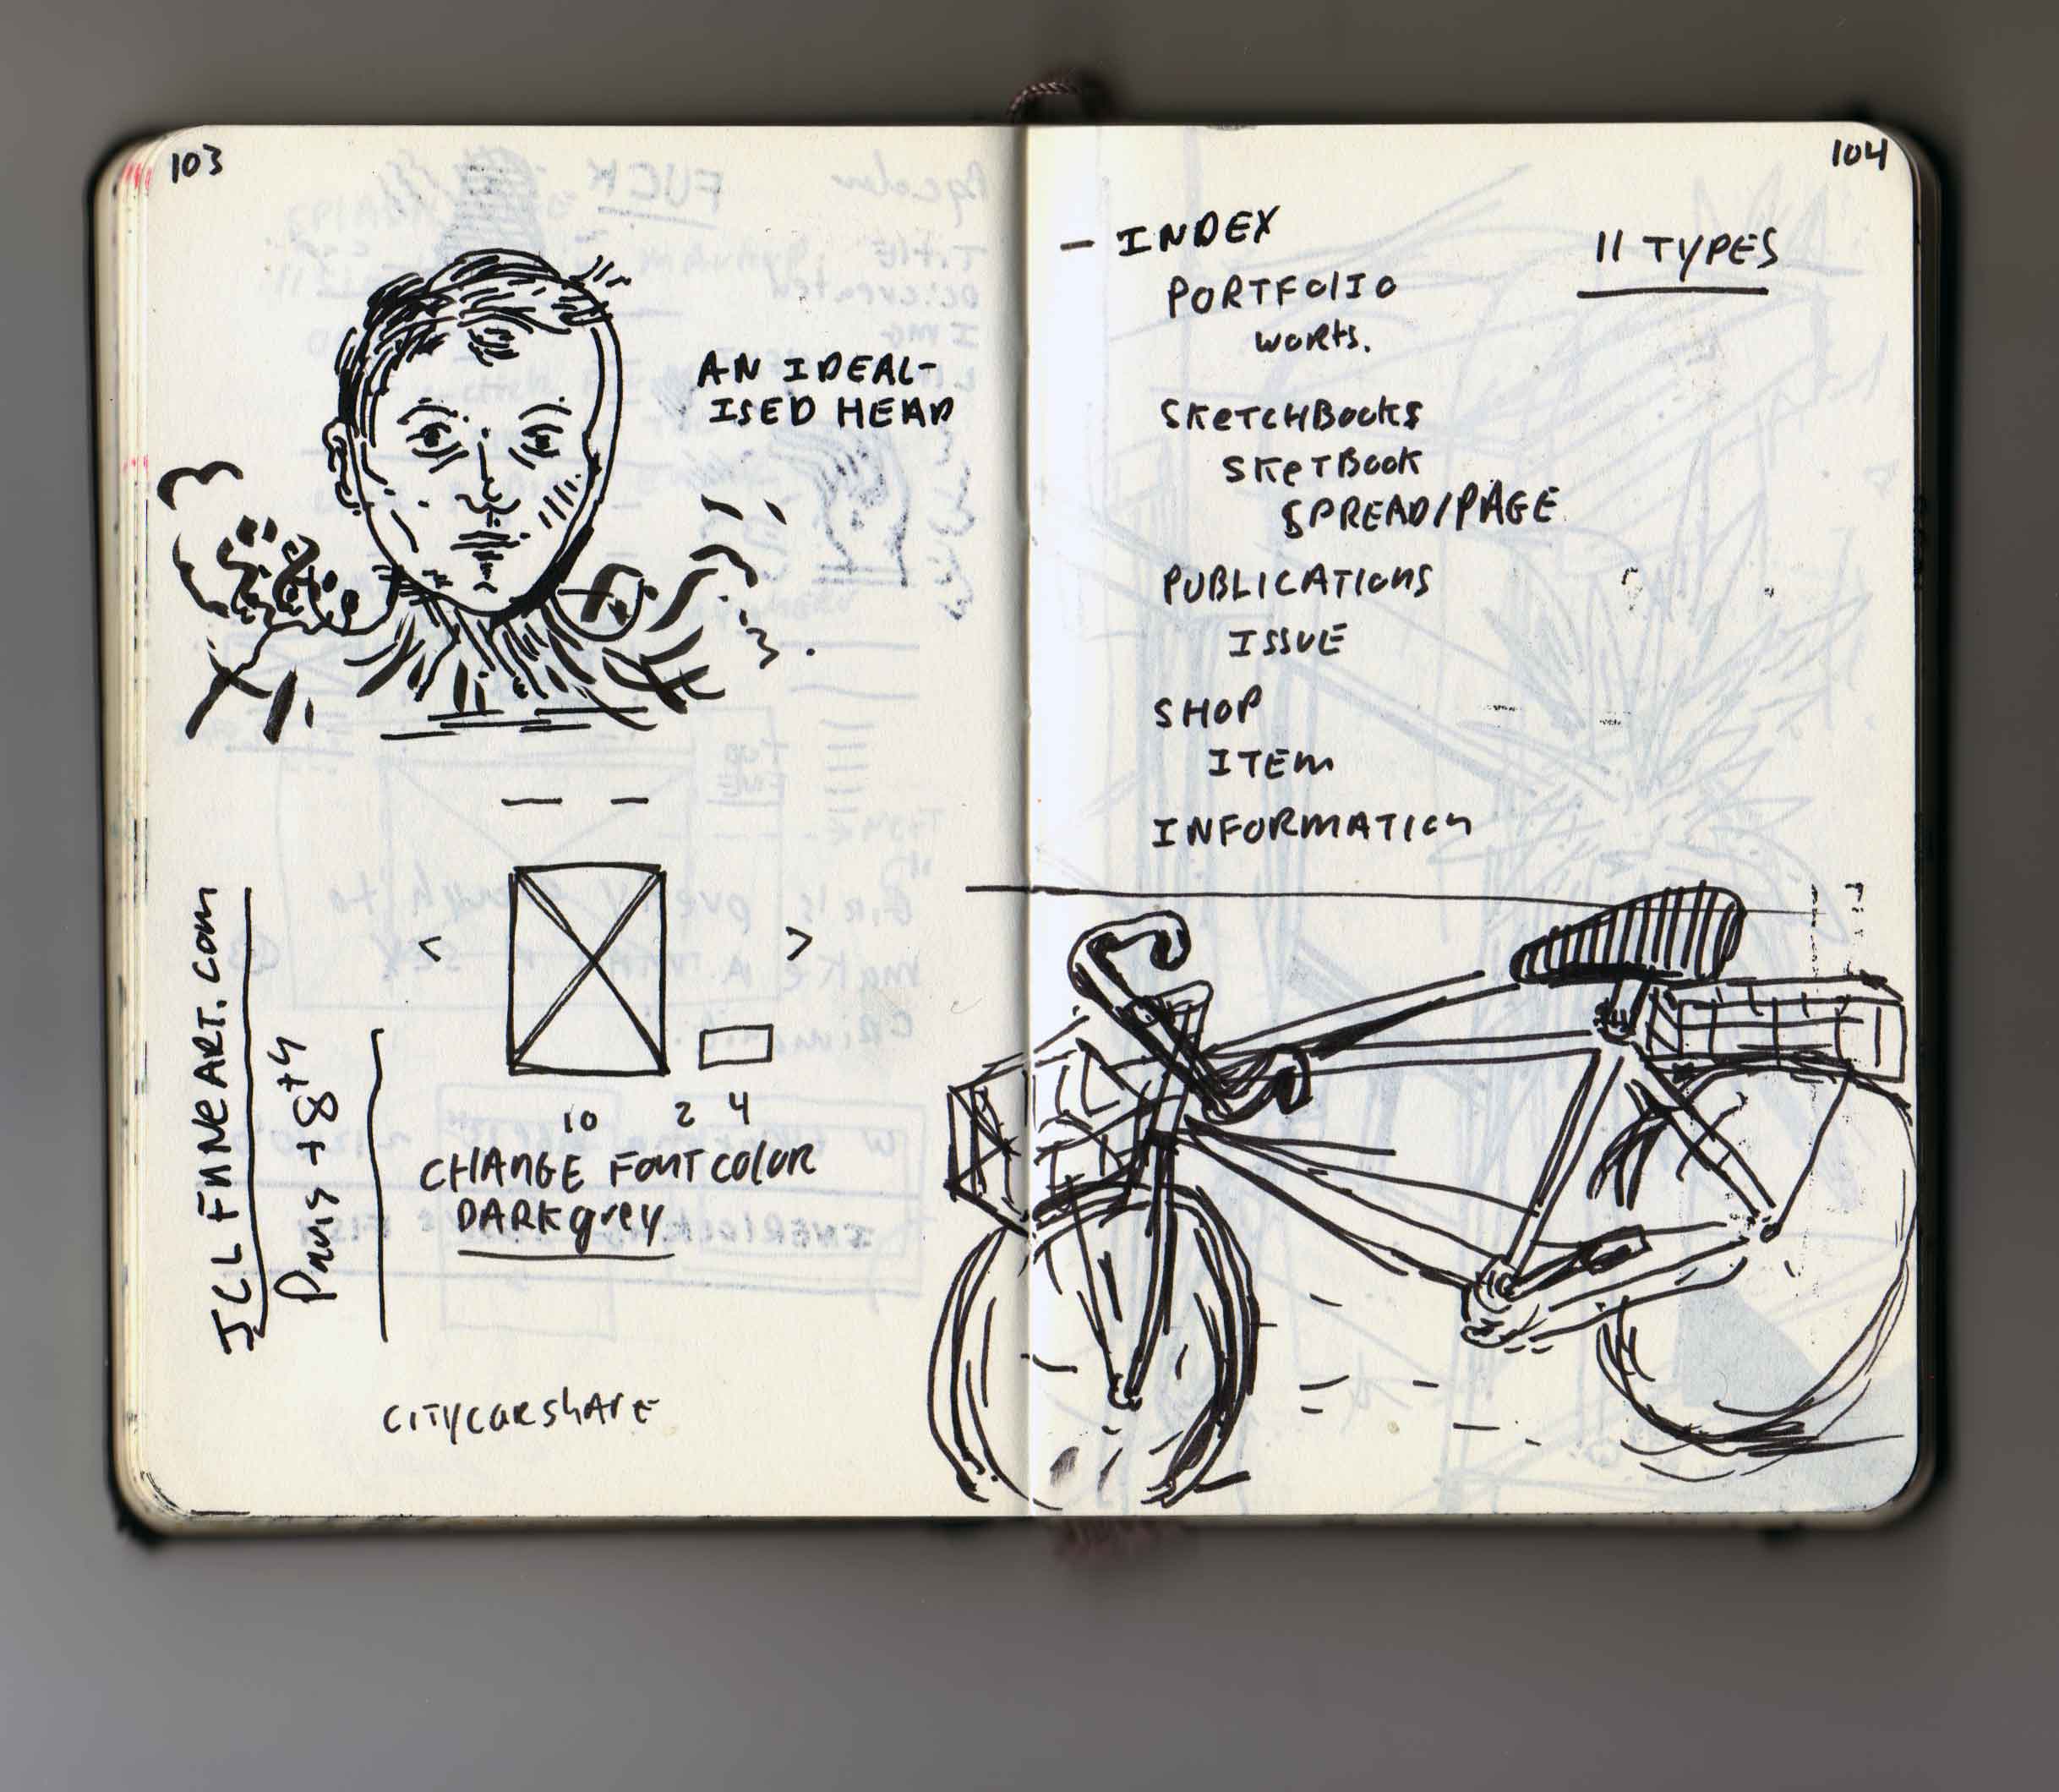 103
AN IDEAL-
ISED HEAD
< >
10 2 4
CHANGE FONT COLOR
DARK grey
JCLFINEART.COM
CITYCARSHARE
104
— INDEX
11 TYPES
PORTFOLIO
WORKS.
SKETCHBOOKS
SKETBOOK
SPREAD/PAGE
PUBLICATIONS
ISSUE
SHOP
ITEM
INFORMATION